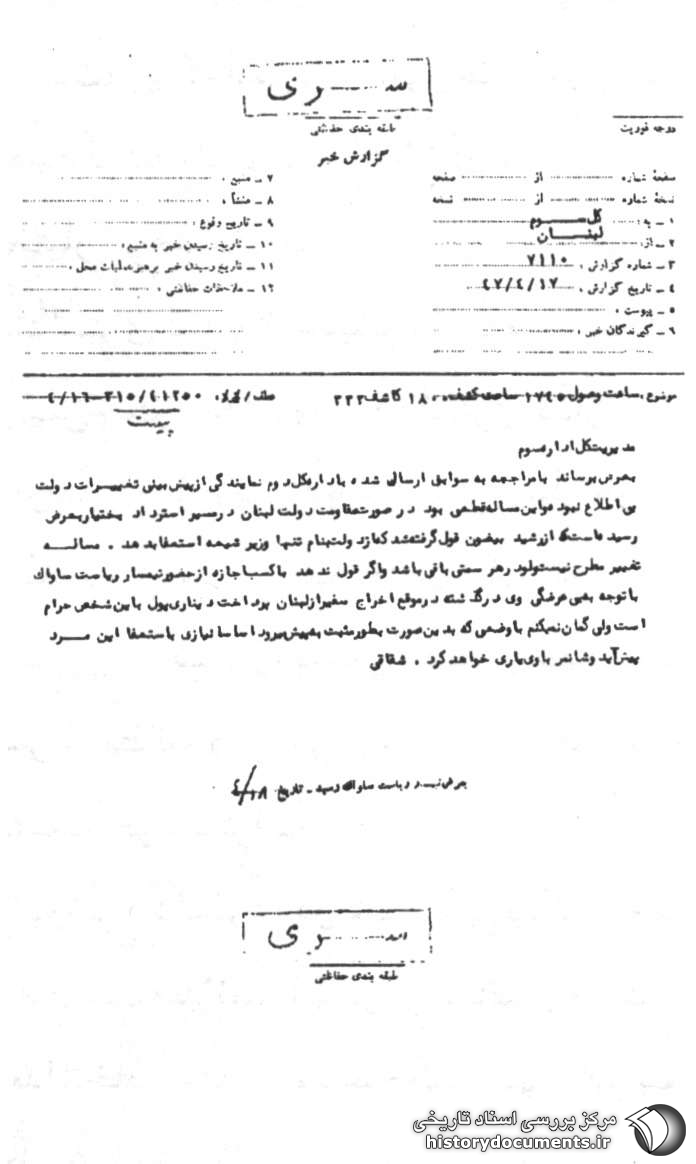 ســـری
طبقه بندی حفاظتی
درجه فوریت
گزارش خبر
صفحهٔ شماره از صفحه
نسخهٔ شماره از نسخه
۱ ـ به : کل ســـوم
۲ ـ از: لبنـــان
۳ ـ شماره گزارش : ۷۱۱۰
۴ ـ تاریخ گزارش : ۴۷/۴/۱۷
۵ ـ پیوست :
۶ ـ گیرندگان خبر :
۷ ـ منبع :
۸ ـ منشأ :
۹ ـ تاریخ وقوع :
۱۰ ـ تاریخ رسیدن خبر به منبع :
۱۱ ـ تاریخ رسیدن خبر برهبر عملیات محل :
۱۲ ـ ملاحظات حفاظتی :
موضوع : ساعت وصول ۱۷۴۵ ساعت کشف ۱۸۰۰ کاشف ۲۲۲
مدیریت کل اداره سوم
بعرض میرساند با مراجعه به سوابق ارسالی شده با اداره کل دوم نمایندگی از پیش بینی تغییـــرات دولت
بی اطلاع نبود و این مساله قطعی بود در صورت مقاومت دولت لبنان در مسیر استرداد بختیار بعرض
رسیده است که از رشید بیضون قول گرفته شد که از دولت بنام تنها وزیر شیعه استعفا بدهد . مسالـــه
تغییر مطرح نیست ولو در هر سمتی باقی باشد و اگر قول ندهد با کسب اجازه از حضور تیمسار ریاست ساواک
با توجه به بی عرضگی وی در گذشته در موقع اخراج سفیر از لبنان پرداخت دیناری پول باین شخص حرام
است ولی گمان نمیکنم با وضعی که بدین صورت بطور مثبت به پیش میرود اساسا نیازی با ستعفا این مـــرد
پیش آید و شانس با وی یاری خواهد کرد . شقاقی
بعرض تیمسار ریاست ساواک رسید ـ تاریخ ۴/۱۸
ســـری
طبقه بندی حفاظتی
مرکز بررسی اسناد تاریخی
historydocuments.ir